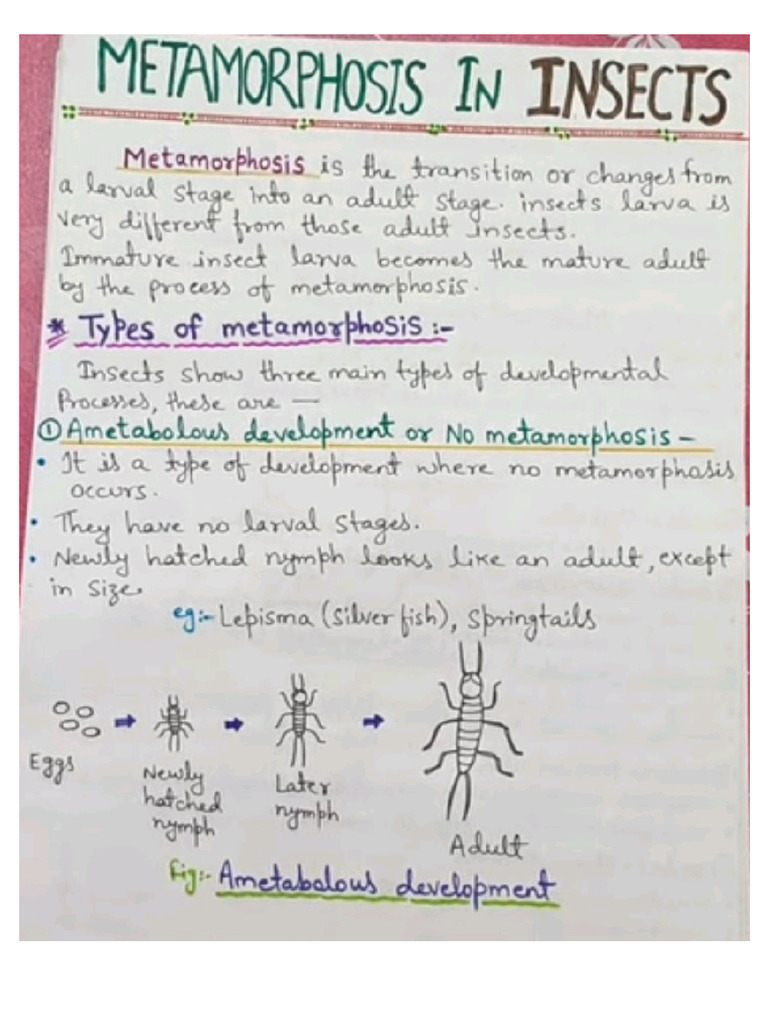 METAMORPHOSIS IN INSECTS
Metamorphosis is the transition or changes from
a larval stage into an adult stage. insects larva is
very different from those adult insects.
Immature insect larva becomes the mature adult
by the process of metamorphosis.
* Types of metamorphosis :-
Insects show three main types of developmental
Processes, these are —
① Ametabolous development or No metamorphosis -
• It is a type of development where no metamorphosis
occurs.
• They have no larval stages.
• Newly hatched nymph looks like an adult, except
in size.
eg:- Lepisma (silver fish), Springtails
Eggs
Newly
hatched
nymph
Later
nymph
Adult
Fig:- Ametabolous development